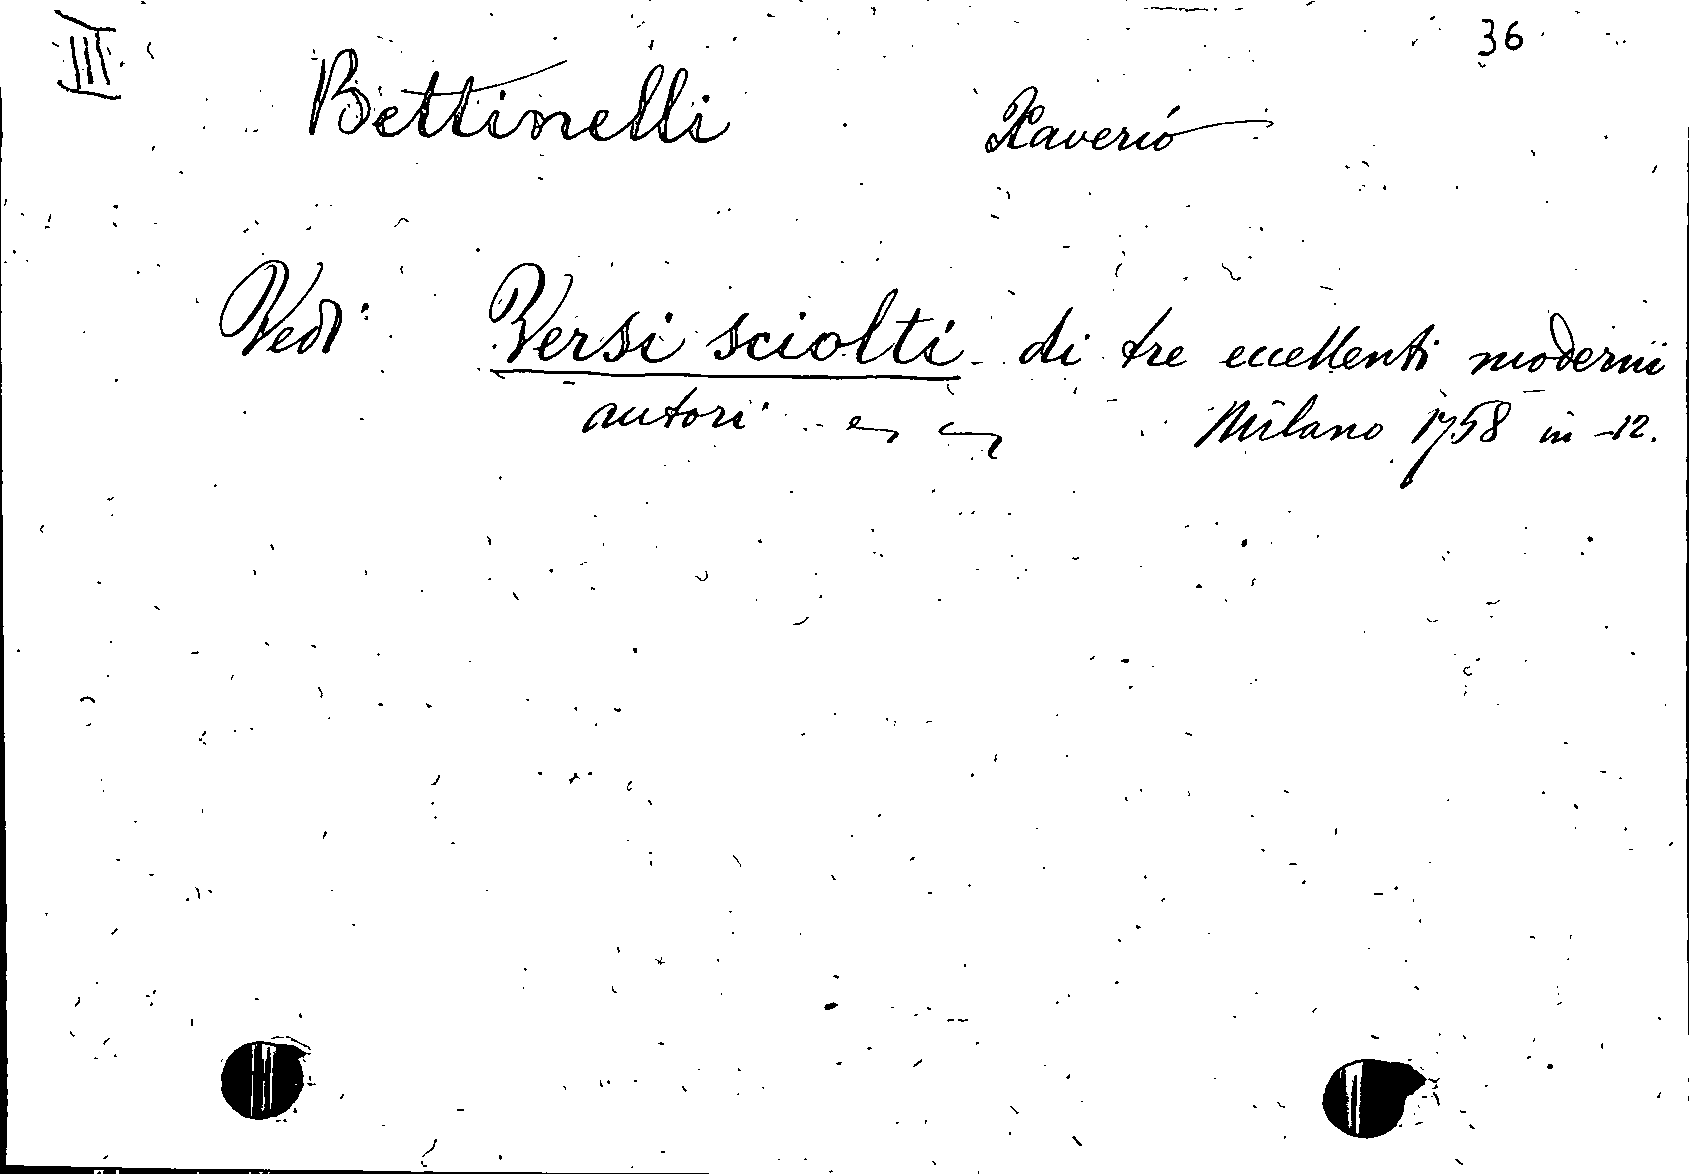 III 36
Bettinelli Xaverio
Vedi Versi sciolti di tre eccellenti moderni
autori Milano 1758 in -12.